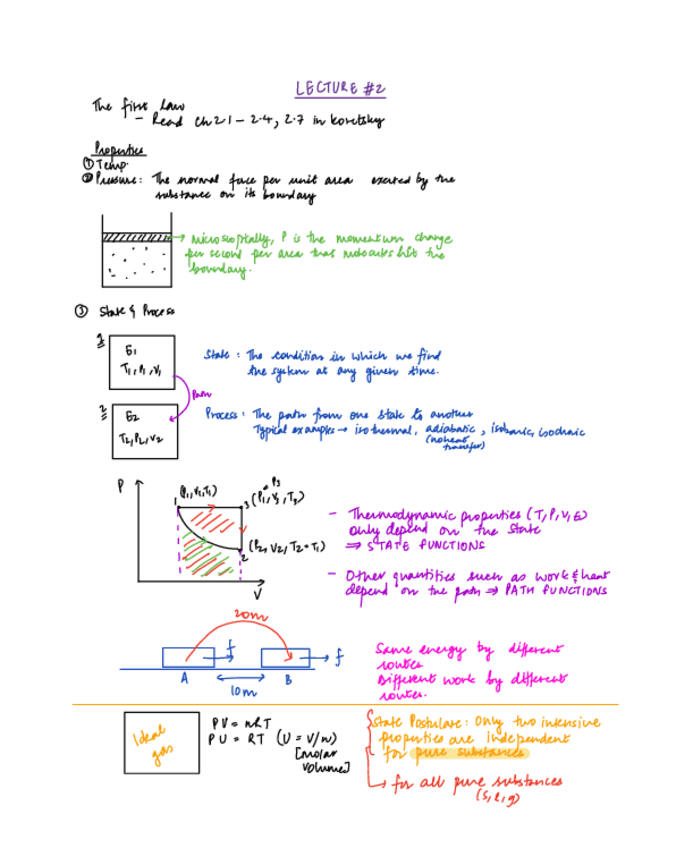 LECTURE #2
The first law
- Read ch 2.1 - 2.4, 2.7 in Koretsky
Properties
① Temp.
② Pressure: The normal force per unit area exerted by the
substance on its boundary
→ Microscopically, P is the momentum change
per second per area that molecules hit the
boundary.
③ State & Process
1
E1
T1, P1, V1
State: The condition in which we find
the system at any given time.
Path
2
E2
T2, P2, V2
Process: The path from one state to another
Typical examples → isothermal, adiabatic, isobaric, isochoric
(no heat
transfer)
P
1
(P1, V1, T1)
P3
3 (P1, V3, T3)
(P2, V2, T2=T1)
2
V
- Thermodynamic properties (T, P, V, E)
only depend on the state
⇒ STATE FUNCTIONS
- Other quantities such as work & heat
depend on the path ⇒ PATH FUNCTIONS
20m
f
f
A
B
10m
Same energy by different
routes
Different work by different
routes.
Ideal
gas
PV = nRT
PU = RT (U = V/n)
[molar
volume]
State Postulate: Only two intensive
properties are independent
for pure substances
→ for all pure substances
(s, l, g)